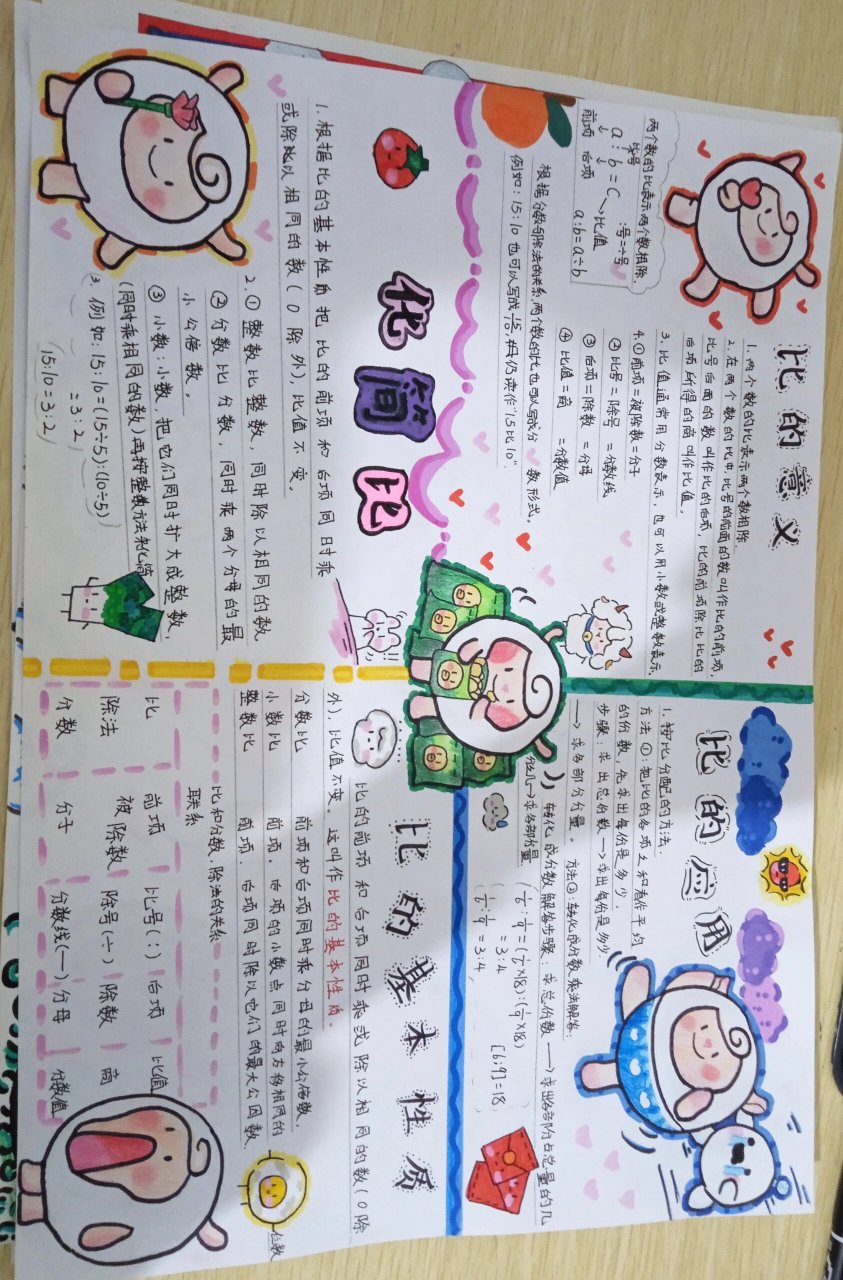 比的意义
1. 两个数的比表示两个数相除.
2. 在两个数的比中,比号的前面的数叫作比的前项,
比号后面的数叫作比的后项,比的前项除比比的
后项所得的商叫作比值。
3. 比值通常用分数表示,也可以用小数或整数表示.
4. ①前项=被除数=分子
②比号=除号=分数线
③后项=除数=分母
④比值=商=分数值
两个数的比表示两个数相除.
比号
a:b=c→比值
前项 后项
:号=÷号
a:b=a÷b
根据分数与除法的关系,两个数的比也可以写成分数形式。
例如:15:10也可以写成15/10,仍读作"15比10"
化简比
1. 根据比的基本性质把比的前项和后项同时乘
或除比以相同的数(0除外),比值不变。
2. ①整数比整数,同时除以相同的数.
②分数比分数,同时乘两个分母的最
小公倍数。
③小数:小数,把它们同时扩大成整数,
(同时乘相同的数)再按整数方法来化简
3. 例如:15:10=(15÷5):(10÷5)
=3:2
15:10=3:2
比的应用
1. 按比分配的方法.
方法①:把比的各项之和看作平均
的份数,先求出每份是多少.
步骤:求出总份数→求出每份是多少
→求各部分分量。
方法②:转化成分数乘法解答.
转化成分数解答步骤,求总份数→求出各部分占总量的几
分之几→求各部分量
1/6:1/9=(1/6×18):(1/9×18)
=3:4
1/6:1/9=3:4
[6:9]=18
比的基本性质
比的前项和后项同时乘或除以相同的数(0除
外),比值不变。这叫作比的基本性质。
分数比 前项和后项同时乘分母的最小公倍数,
小数比 前项,后项的小数点同时向右移相同的
位数
整数比 前项,后项同时除以它们的最大公因数
比和分数,除法的关系
联系
比 前项 比号(:) 后项 比值
除法 被除数 除号(÷) 除数 商
分数 分子 分数线(—) 分母 分数值